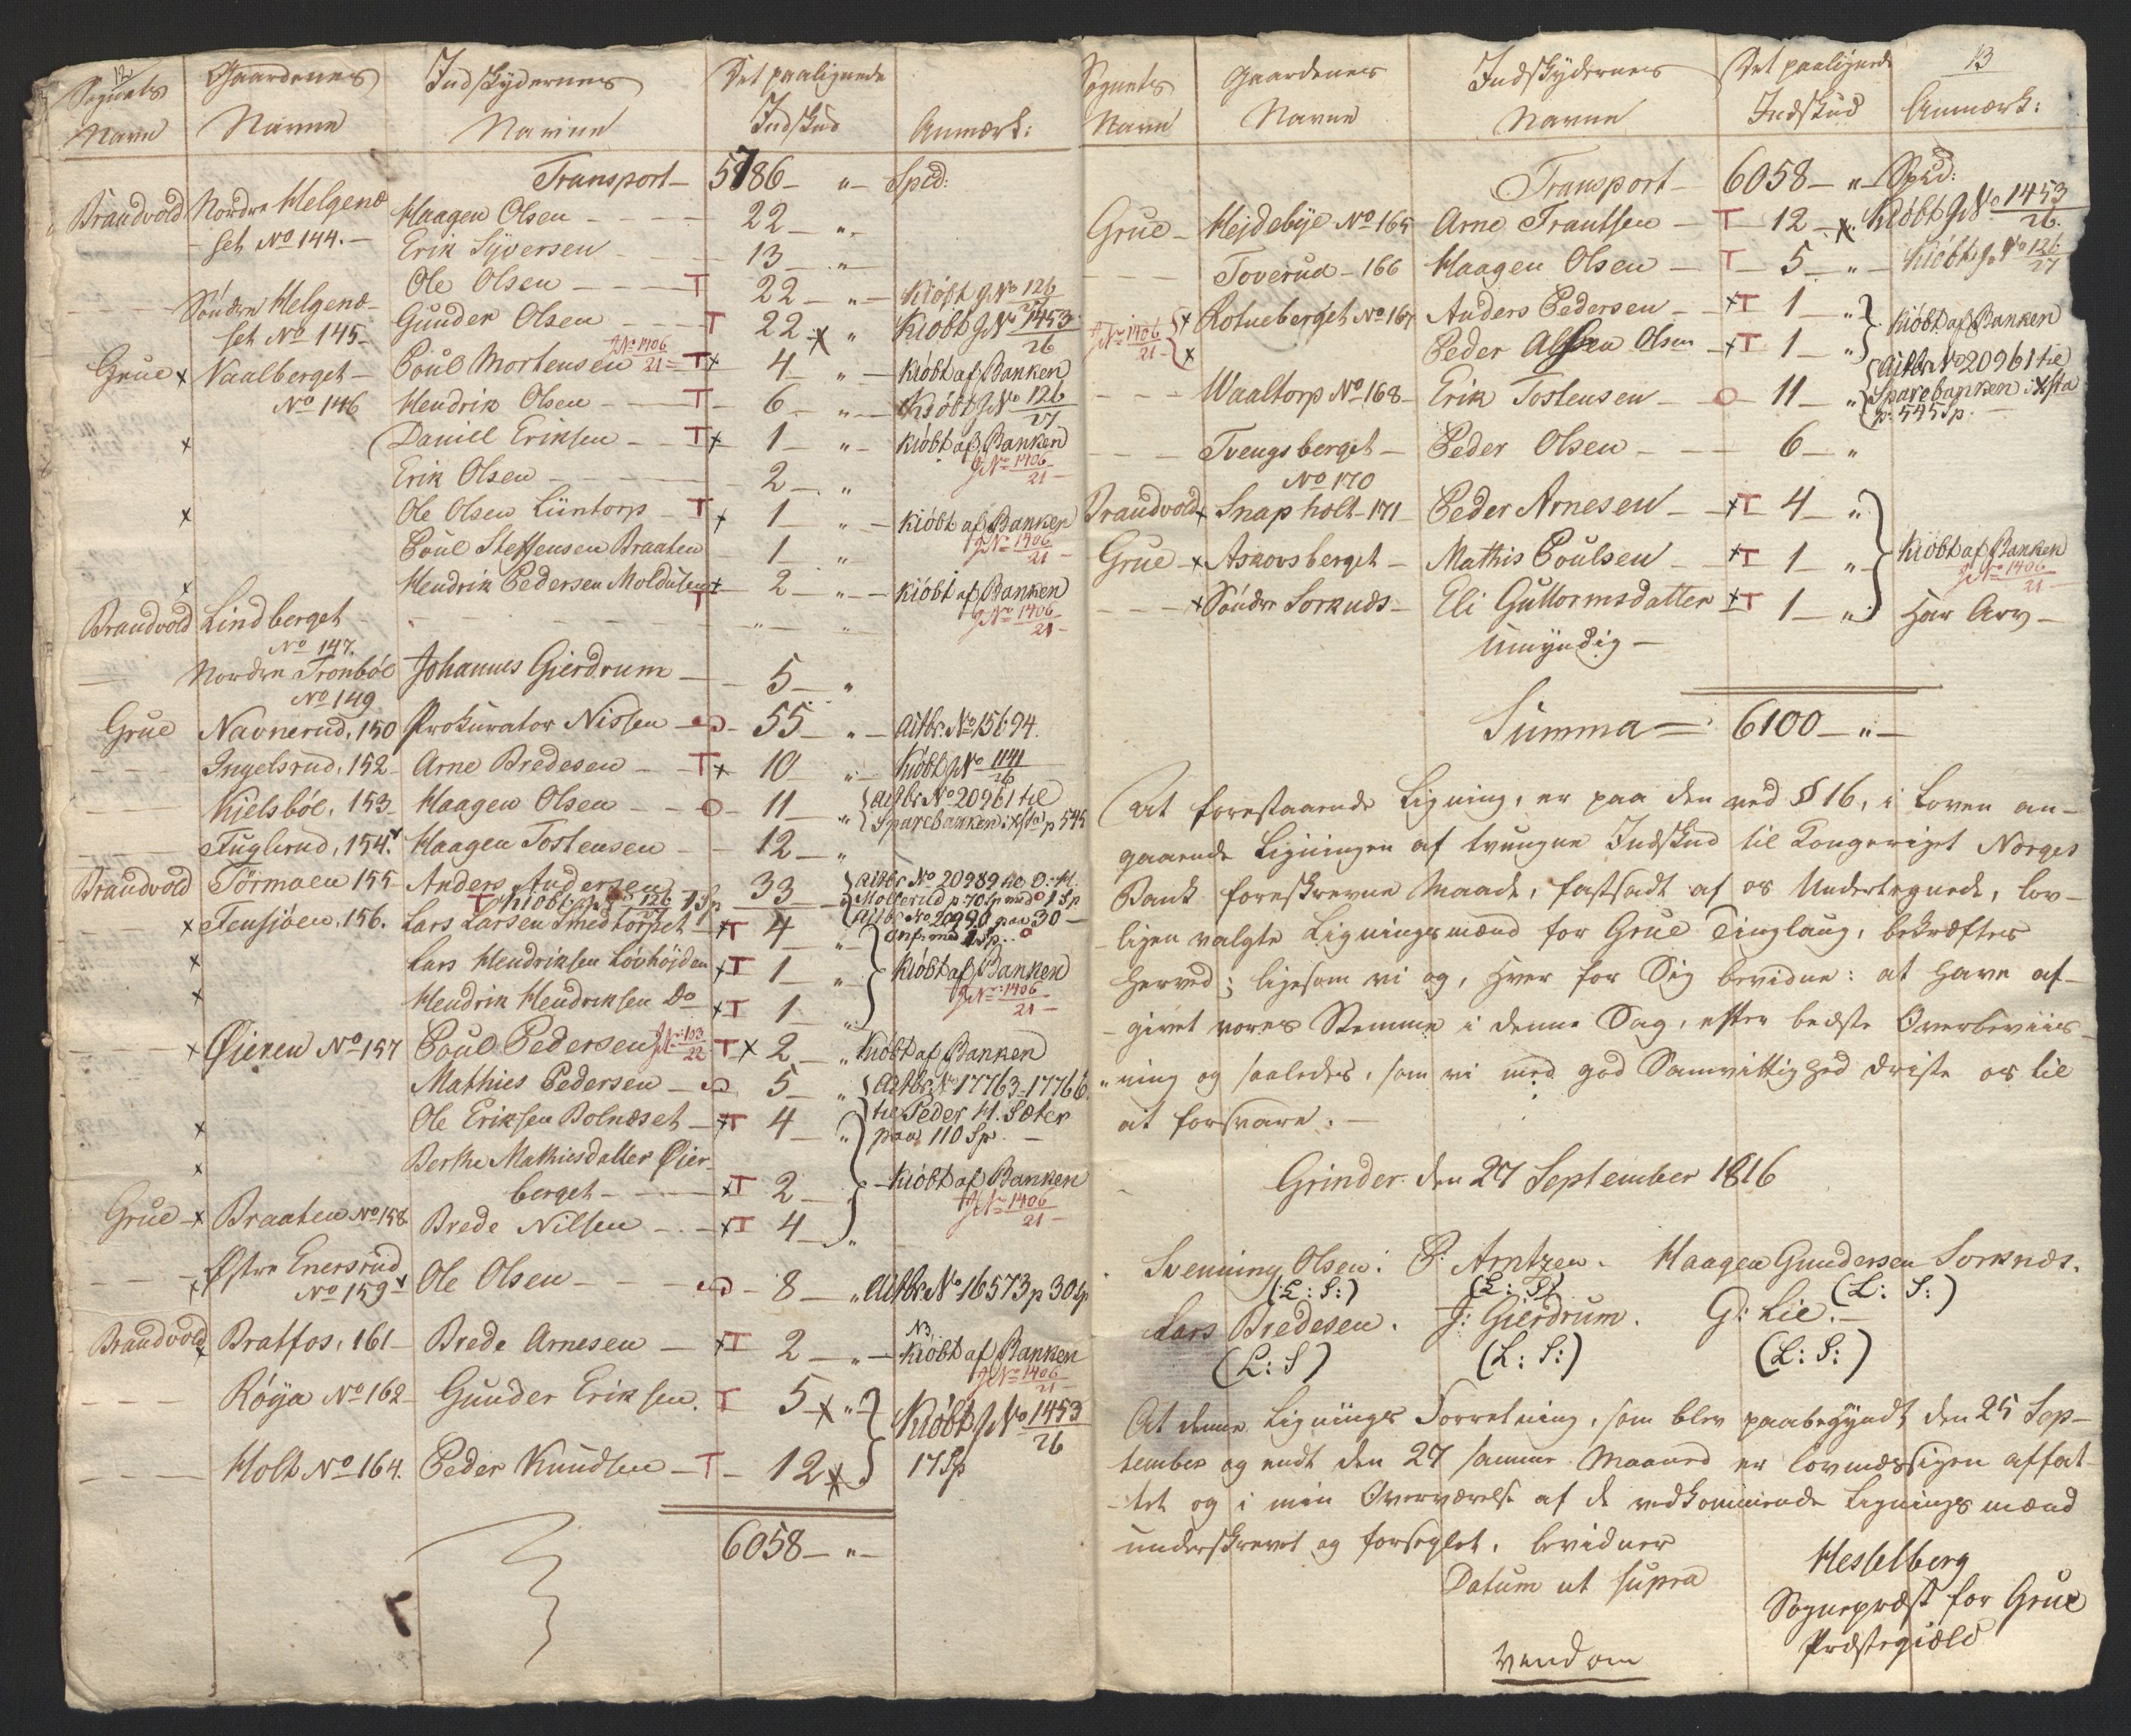 12
Sognets Gaardenes Indskydernes Det paalignede
Navn Navne Navne Indskud Anmærk:
Transport 5786 " Spd:
Brandvold Nordre Helgenæ- Haagen Olsen 22 "
set No 144. Erik Syversen 13 "
Ole Olsen T 22 " Kiöbt J No 126/27
Söndre Helgenæ- Gunder Olsen T 22 x " Kiöbt J No 1453/26
set No 145
Grue x Vaalberget Poul Mortensen J No 1406/21 T x 4 " Kiöbt af Banken
No 146 Hendrik Olsen T 6 " Kiöbt J No 126/27
x Daniel Eriksen T x 1 " Kiöbt af Banken
J No 1406/21
Erik Olsen 2 "
x Ole Olsen Lüntorp T x 1 " Kiöbt af Banken
J No 1406/21
Poul Steffensen Braaten 1 "
x Hendrik Pedersen Moldusen T x 2 " Kiöbt af Banken
J No 1406/21
Brandvold Lindberget " "
No 147.
Nordre Tronböl Johannes Gierdrum 5 "
No 149
Grue Navnerud, 150 Prokurator Nissen 55 " Aitbr. No 15694.
Ingelsrud, 152 Arne Bredesen T x 10 " Kiöbt J No 1141/26
Kielsböl, 153 Haagen Olsen O 11 " Aitbr No 20961 til
Sparebanken i Xsta p 545
Fuglerud, 154. x Haagen Tostensen 12 "
Brandvold Törmoen 155 Anders Andersen 33 Aitbr No 20989 til O: H.
T Kiöbt J No 126/27 1 Sp Molterud p. 70 Sp med 1 Sp
Aitbr No 20990 paa 30
x Tensjöen, 156. Lars Larsen Smedtorpet x T 4 "
x Lars Hendriksen Lövhöjden x T 1 " Kiöbt af Banken
J No 1406/21
x Hendrik Hendriksen Do x T 1 "
x Öieren No 157 Poul Pedersen J No 103/22 T x 2 " Kiöbt af Banken
Mathies Pedersen 5 " Aitbr. No 17763-17766
til Peder H. Sæter
x Ole Eriksen Bolnæset x T 4 " paa 110 Sp.
x Berthe Mathiesdatter Öier-
berget x T 2 Kiöbt af Banken
J No 1406/21
Grue x Braaten No 158 Brede Nilsen x T 4 "
Östre Enersrud Ole Olsen 8 " Aitbr No 16573 p 30 Sp
x No 159 x
Brandvold x Bratfos, 161 Brede Arnesen x T 2 " NB. Kiöbt af Banken
J No 1406/21
Röya No 162 Gunder Eriksen. T 5 x " Kiöbt J No 1453/26
Holt No 164. Peder Knudsen T 12 x 17 Sp
6058 "
13
Sognets Gaardenes Indskydernes Det paalignede
Navn Navne Navne Indskud Anmærk:
Transport 6058 " Spd:
Grue Hejdebye No 165 Arne Frantsen T 12 x " Kiöbt J No 1453/26.
Toverud 166 Haagen Olsen T 5 " Kiöbt J No 126/27
J No 1406/21 x Rotneberget No 167 Anders Pedersen x T 1 " Kiöbt af Banken
x Peder Olsen x T 1 "
Waaltorp No 168 Erik Tostensen O 11 " Aitbr No 20961 til
Sparebanken i Xsta
p. 545 Sp.
Tvengsberget Peder Olsen 6 "
No 170
Brandvold x Snapholt 171 Peder Arnesen x T 4 "
Grue x Askovsberget Mathis Poulsen x T 1 " Kiöbt af Banken
J No 1406/21
x Söndre Sorknæs Eli Guttormsdatter x T 1 " Har Arv
Umyndig
Summa = 6100 "
At forestaaende Ligning, er paa den ved § 16, i Loven an-
gaaende Ligningen af tvungne Indskud til Kongeriget Norges
Bank foreskrevne Maade, fastsadt af os Undertegnede, lov-
ligen valgte Ligningsmænd for Grue Tinglaug, bekræftes
herved; ligesom vi og, hver for Sig bevidne: at have af-
givet vores Stemme i denne Sag, efter bedste Overbeviis-
ning og saaledes, som vi med god Samvittighed driste os til
at forsvare.
Grinder den 27 September 1816
Svenning Olsen. P: Arntzen. Haagen Gundersen Sorknæs.
(L: S:) (L: S:) (L: S:)
Lars Bredesen. J: Gierdrum. G: Lie.
(L: S) (L: S:) (L: S:)
At denne Lignings Forretning, som blev paabegyndt den 25 Sep-
tember og endt den 27 samme Maaned er lovmæssigen affat-
tet og i min Overværelse af de vedkommende Ligningsmænd
underskrevet og forseglet, bevidner
Datum ut supra
Hesselberg
Sognepræst for Grue
Præstegiæld
Vend om